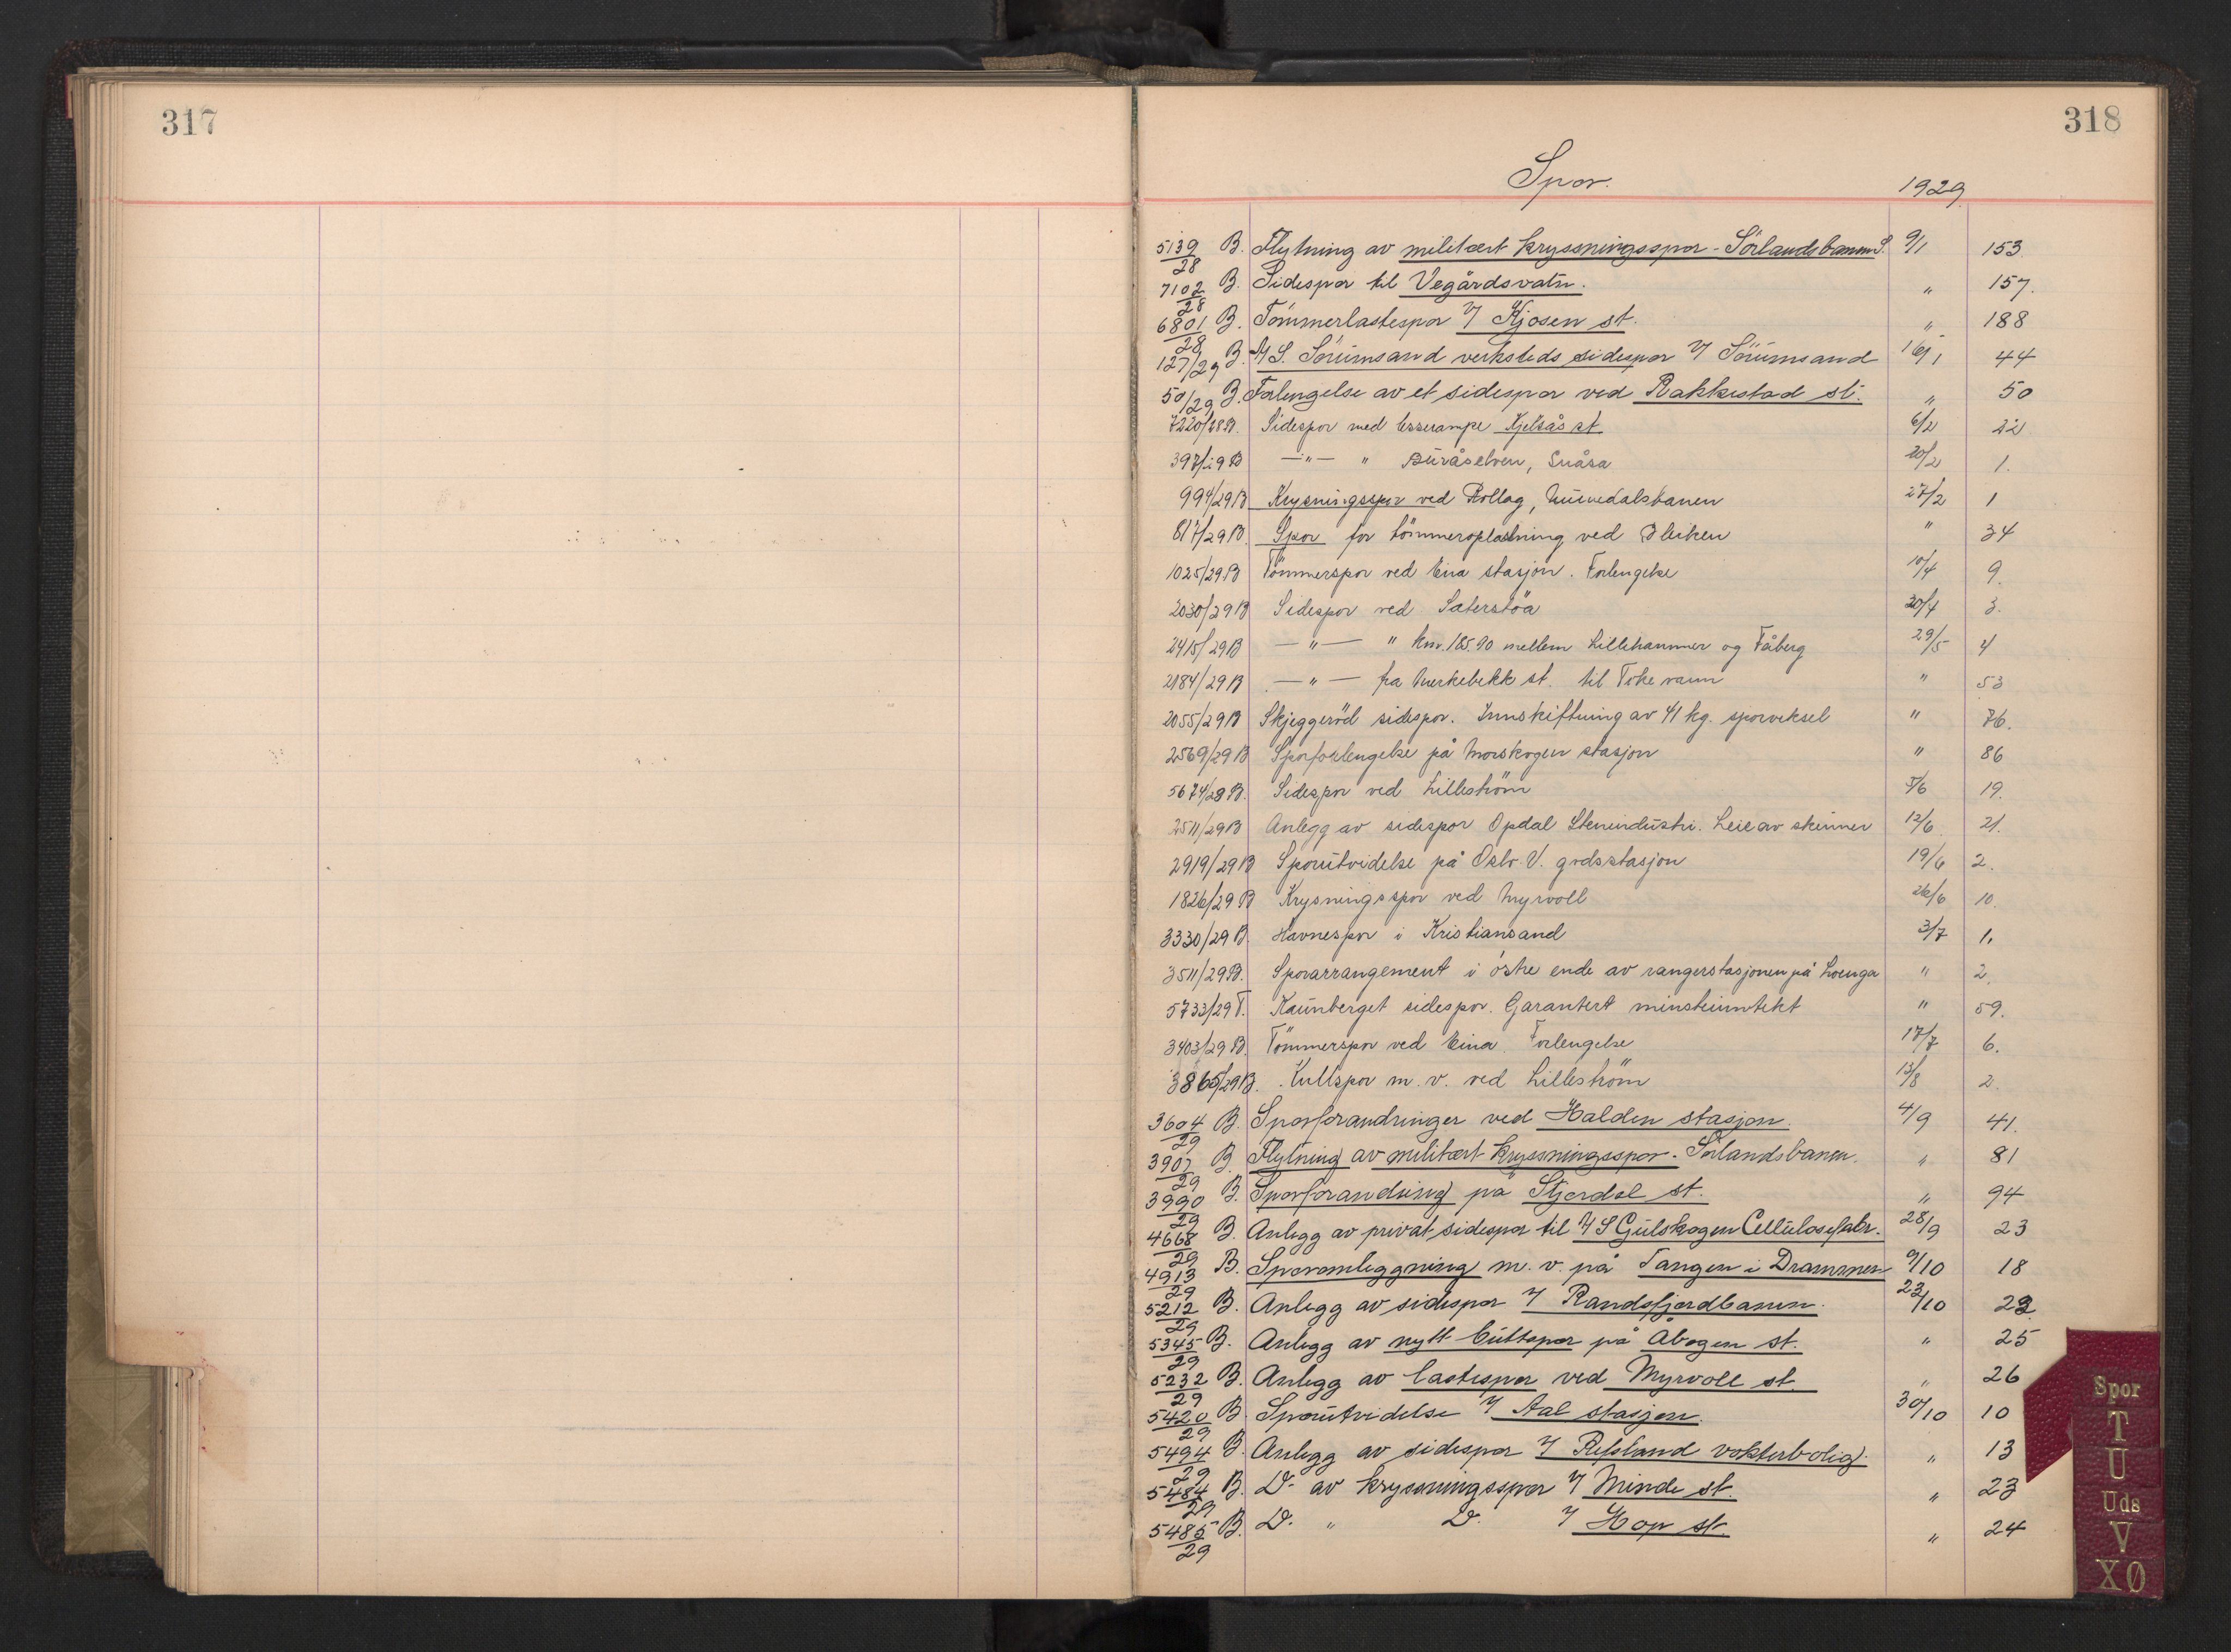 317
318
Spor.
1929
5139/28 B. Flytning av militært kryssningsspor - Sörlandsbanen S. 9/1 153
7102/28 B. Sidespor til Vegårdsvatn. " 157.
6801/28 B. Tömmerlastespor v/ Kjosen st. " 188
127/29 B. A/S. Sörumsand verksteds sidespor v/ Sörumsand 16/1 44
50/29 B. Forlengelse av et sidespor ved Rakkestad st. " 50
7220/28 B. Sidespor med lesserampe Kjelsås st. 6/2 22
397/29 B —"— " Buråselven, Snåsa 20/2 1.
994/29 B Krysningsspor ved Rollag, Numedalsbanen 27/2 1
817/29 B. Spor for tömmeroplastning ved Bleiken " 34
1025/29 B Tömmerspor ved Eina stasjon. Forlengelse 10/4 9.
2030/29 B Sidespor ved Saterstöa 30/4 3.
2415/29 B —"— " km. 185.90 mellem Lillehammer og Fåberg 29/5 4
2184/29 B —"— fra Merkebekk st. til Tokevann " 53
2055/29 B Skjeggeröd sidespor. Innskiftning av 41 kg. sporveksel " 76.
2569/29 B Sporforlengelse på Morskogen stasjon " 86
5674/28 B. Sidespor ved Lilleström 5/6 19.
2511/29 B Anlegg av sidespor Opdal Stenindustri. Leie av skinner 12/6 21.
2919/29 B Sporutvidelse på Oslo V. godsstasjon 19/6 2.
1826/29 B Krysningsspor ved Myrvoll 26/6 10.
3330/29 B. Havnespor i Kristiansand 3/7 1.
3511/29 B. Sporarrangement i östre ende av rangerstasjonen på Loenga " 2.
5733/29 T. Kaunberget sidespor. Garantert minsteinntekt " 59.
3403/29 B. Tömmerspor ved Eina. Forlengelse 17/7 6.
3865/29 B. Kullspor m.v. ved Lilleström 13/8 2.
3604/29 B. Sporforandringer ved Halden stasjon. 4/9 41.
3907/29 B. Flytning av militært kryssningsspor. Sörlandsbanen. " 81
3990/29 B. Sporforandring på Stjördal st. " 94
4668/29 B. Anlegg av privat sidespor til A/S Gulskogen Cellulosefabr. 28/9 23
4913/29 B. Sporomleggning m.v. på Tangen i Drammen 9/10 18
5212/29 B. Anlegg av sidespor v/ Randsfjordbanen. 23/10 23
5345/29 B. Anlegg av nytt buttspor på Åbogen st. " 25
5232/29 B. Anlegg av lastespor ved Myrvoll st. " 26
5420/29 B. Sporutvidelse v/ Aal stasjon. 30/10 10
5494/29 B. Anlegg av sidespor v/ Refsland vokterbolig. " 13
5484/29 B. D. av kryssningsspor v/ Minde st. " 23
5485/29 B. D. " D. v/ Hop st. " 24
Spor
T
U
Uds
V
XØ